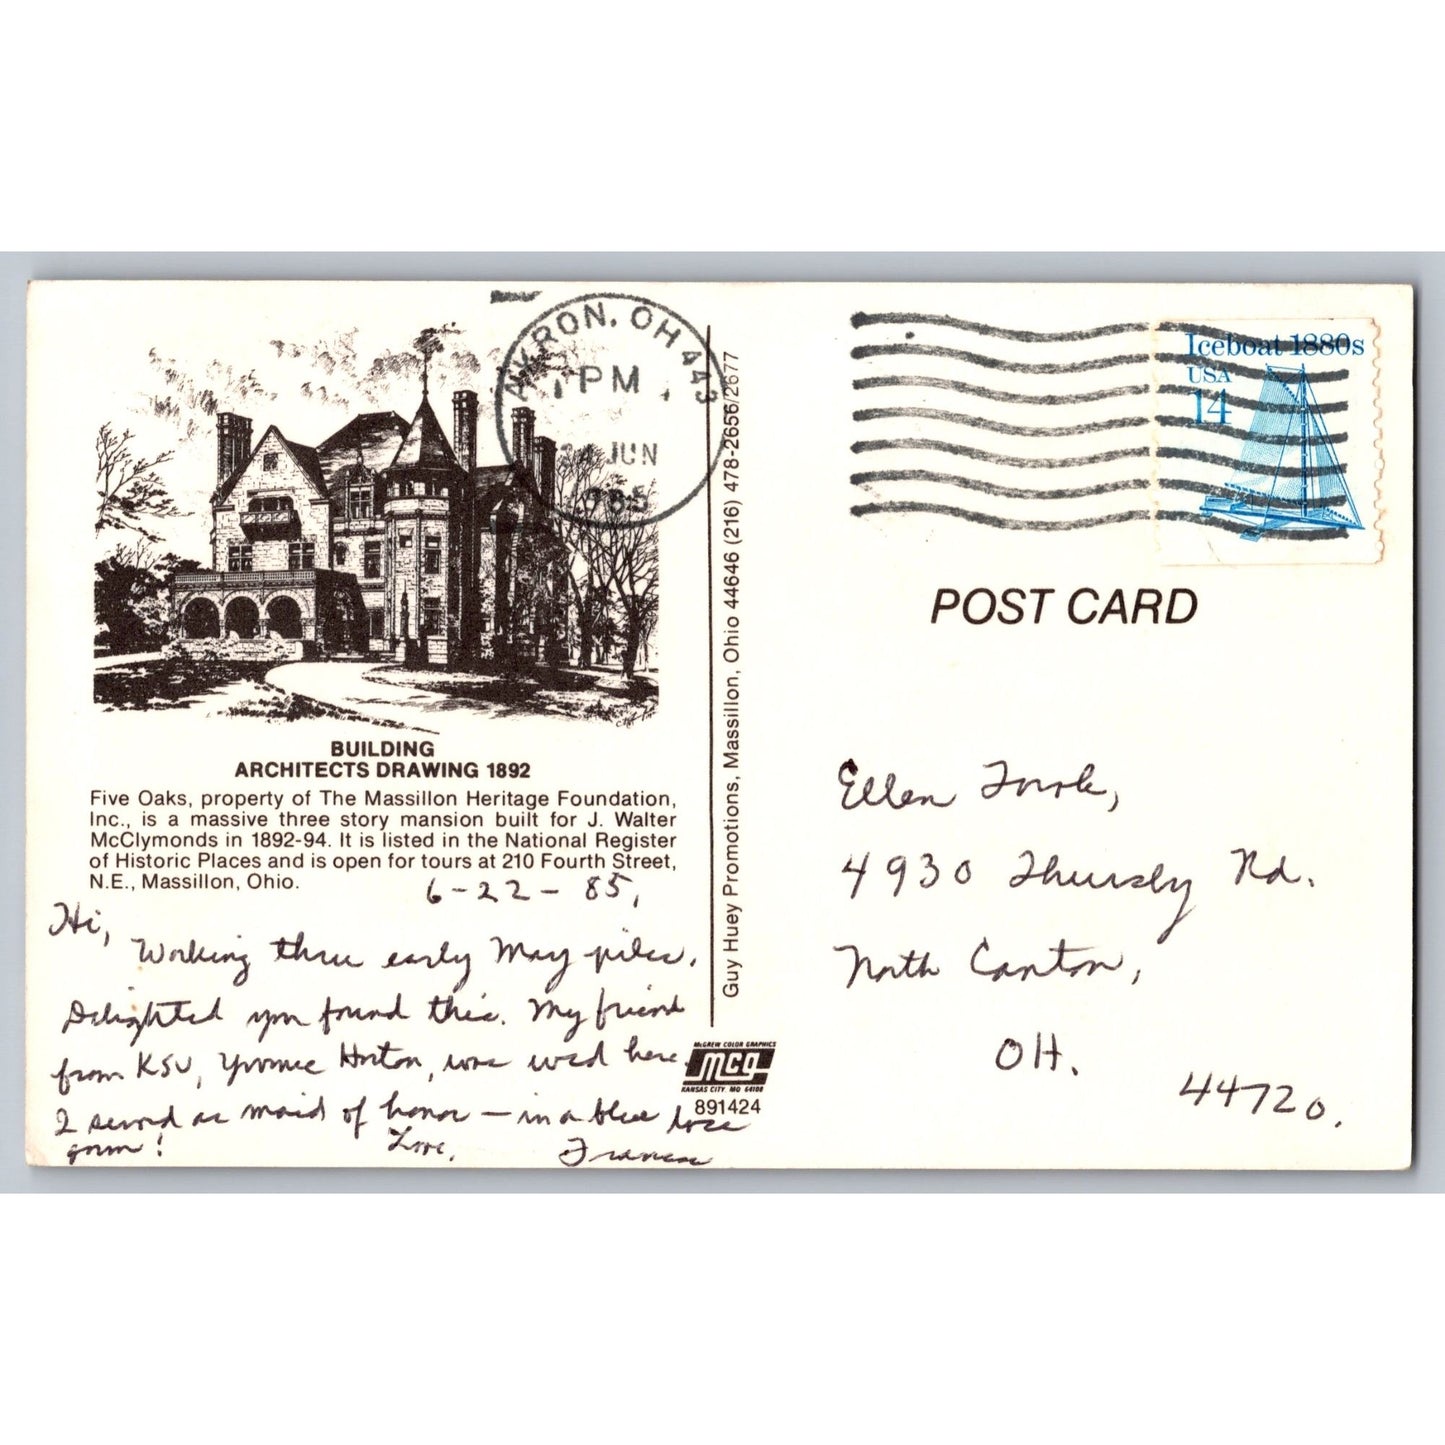 AKRON, OH 443
PM
JUN
1985
Iceboat 1880s
USA
14
BUILDING
ARCHITECTS DRAWING 1892
Five Oaks, property of The Massillon Heritage Foundation,
Inc., is a massive three story mansion built for J. Walter
McClymonds in 1892-94. It is listed in the National Register
of Historic Places and is open for tours at 210 Fourth Street,
N.E., Massillon, Ohio.
6-22-85,
Hi,
Working thru early May piles.
Delighted you found this. My friend
from KSU, Yvonne Horton, was wed here.
I served as maid of honor — in a blue lace
gown!
Love,
Frances
Guy Huey Promotions, Massillon, Ohio 44646 (216) 478-2656/2677
McGREW COLOR GRAPHICS
mcg
KANSAS CITY, MO 64108
891424
POST CARD
Ellen
4930 Thursby Rd.
North Canton,
OH.
44720.